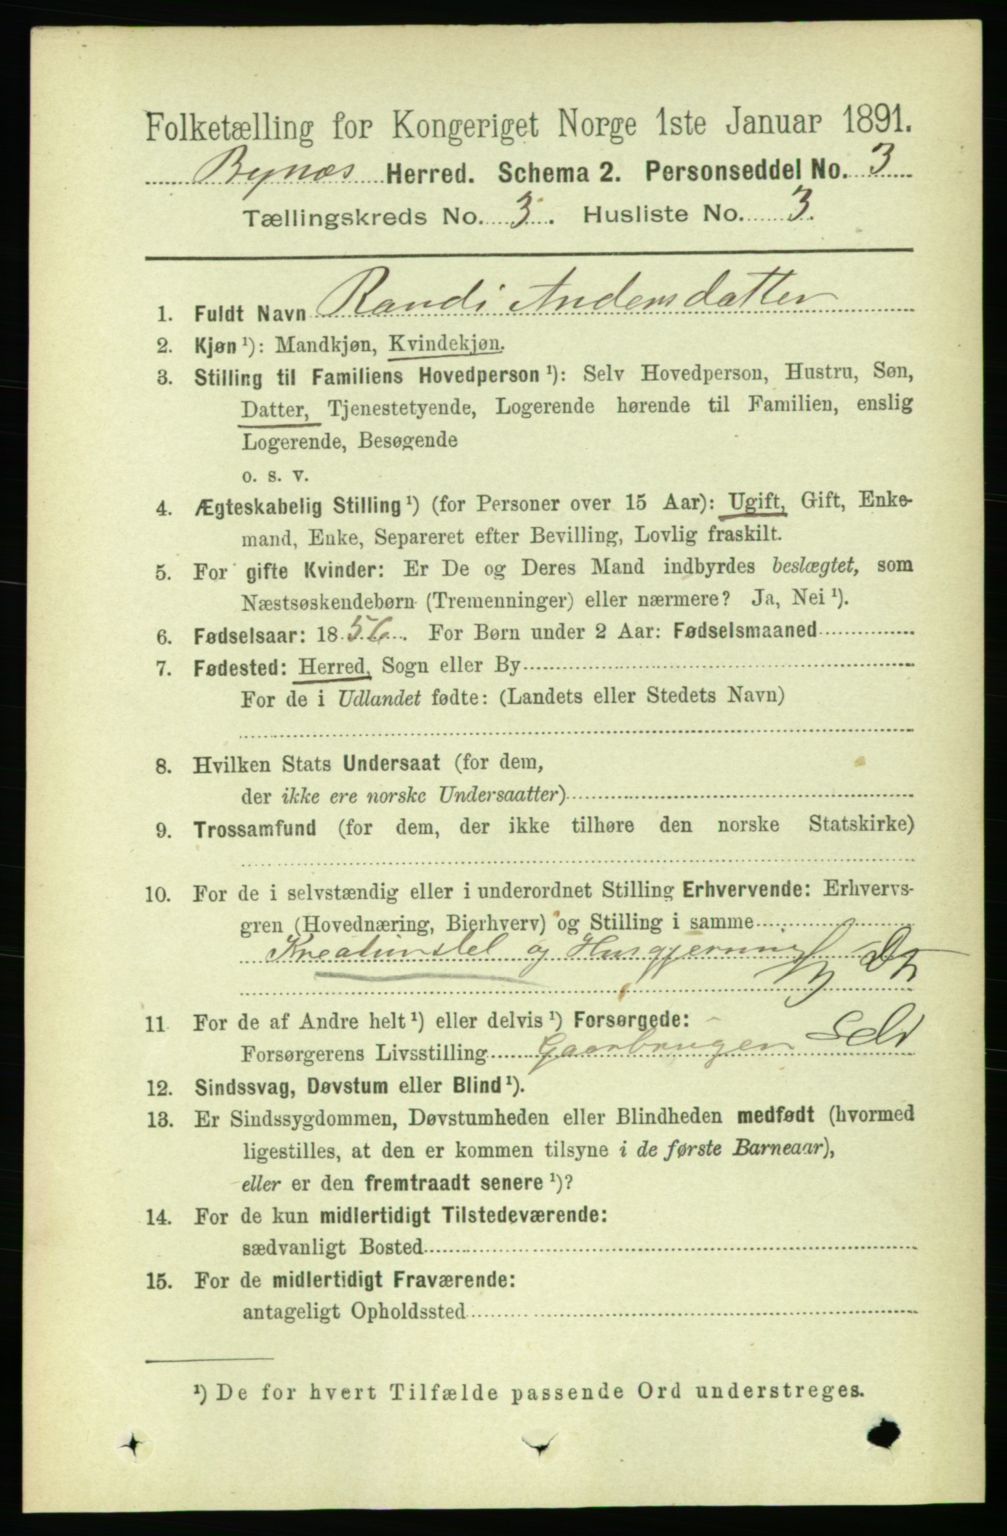 Folketælling for Kongeriget Norge 1ste Januar 1891.
Bynæs Herred. Schema 2. Personseddel No. 3
Tællingskreds No. 3. Husliste No. 3.
1. Fuldt Navn Randi Andersdatter
2. Kjøn ¹): Mandkjøn, Kvindekjøn.
3. Stilling til Familiens Hovedperson ¹): Selv Hovedperson, Hustru, Søn,
Datter, Tjenestetyende, Logerende hørende til Familien, enslig
Logerende, Besøgende
o. s. v.
4. Ægteskabelig Stilling ¹) (for Personer over 15 Aar): Ugift, Gift, Enke-
mand, Enke, Separeret efter Bevilling, Lovlig fraskilt.
5. For gifte Kvinder: Er De og Deres Mand indbyrdes beslægtet, som
Næstsøskendebørn (Tremenninger) eller nærmere? Ja, Nei ¹).
6. Fødselsaar: 1856. For Børn under 2 Aar: Fødselsmaaned
7. Fødested: Herred, Sogn eller By
For de i Udlandet fødte: (Landets eller Stedets Navn)
8. Hvilken Stats Undersaat (for dem,
der ikke ere norske Undersaatter)
9. Trossamfund (for dem, der ikke tilhøre den norske Statskirke)
10. For de i selvstændig eller i underordnet Stilling Erhvervende: Erhvervs-
gren (Hovednæring, Bierhverv) og Stilling i samme
Kreaturstel og Husgjerning
11 For de af Andre helt ¹) eller delvis ¹) Forsørgede:
Forsørgerens Livsstilling Gaarbruger Selv
12. Sindssvag, Døvstum eller Blind ¹).
13. Er Sindssygdommen, Døvstumheden eller Blindheden medfødt (hvormed
ligestilles, at den er kommen tilsyne i de første Barneaar),
eller er den fremtraadt senere ¹)?
14. For de kun midlertidigt Tilstedeværende:
sædvanligt Bosted
15. For de midlertidigt Fraværende:
antageligt Opholdssted
¹) De for hvert Tilfælde passende Ord understreges.